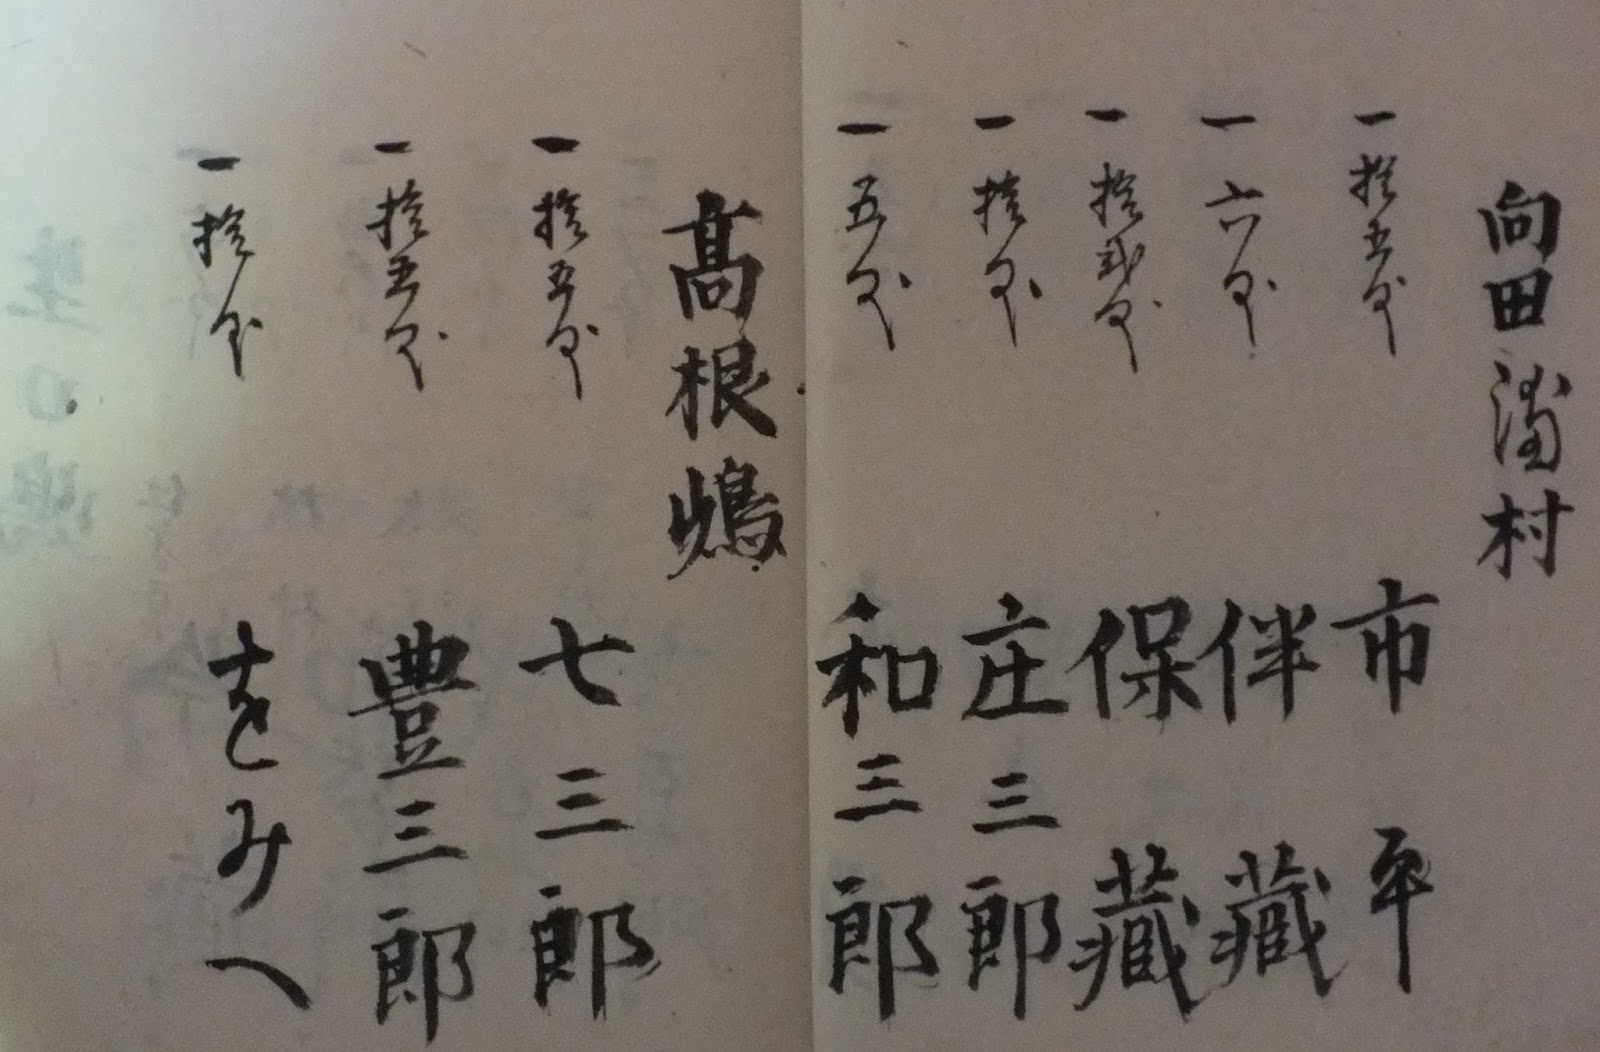 向田浦村
一拾五匁 市平
一六匁 伴藏
一拾弐匁 保藏
一拾匁 庄三郎
一五匁 和三郎
髙根嶋
一拾五匁 七三郎
一拾五匁 豊三郎
一拾匁 をみへ